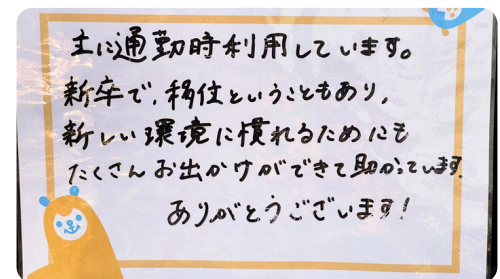 主に通勤時利用しています。
新卒で、移住ということもあり、
新しい環境に慣れるためにも
たくさんお出かけができて助かっています。
ありがとうございます!